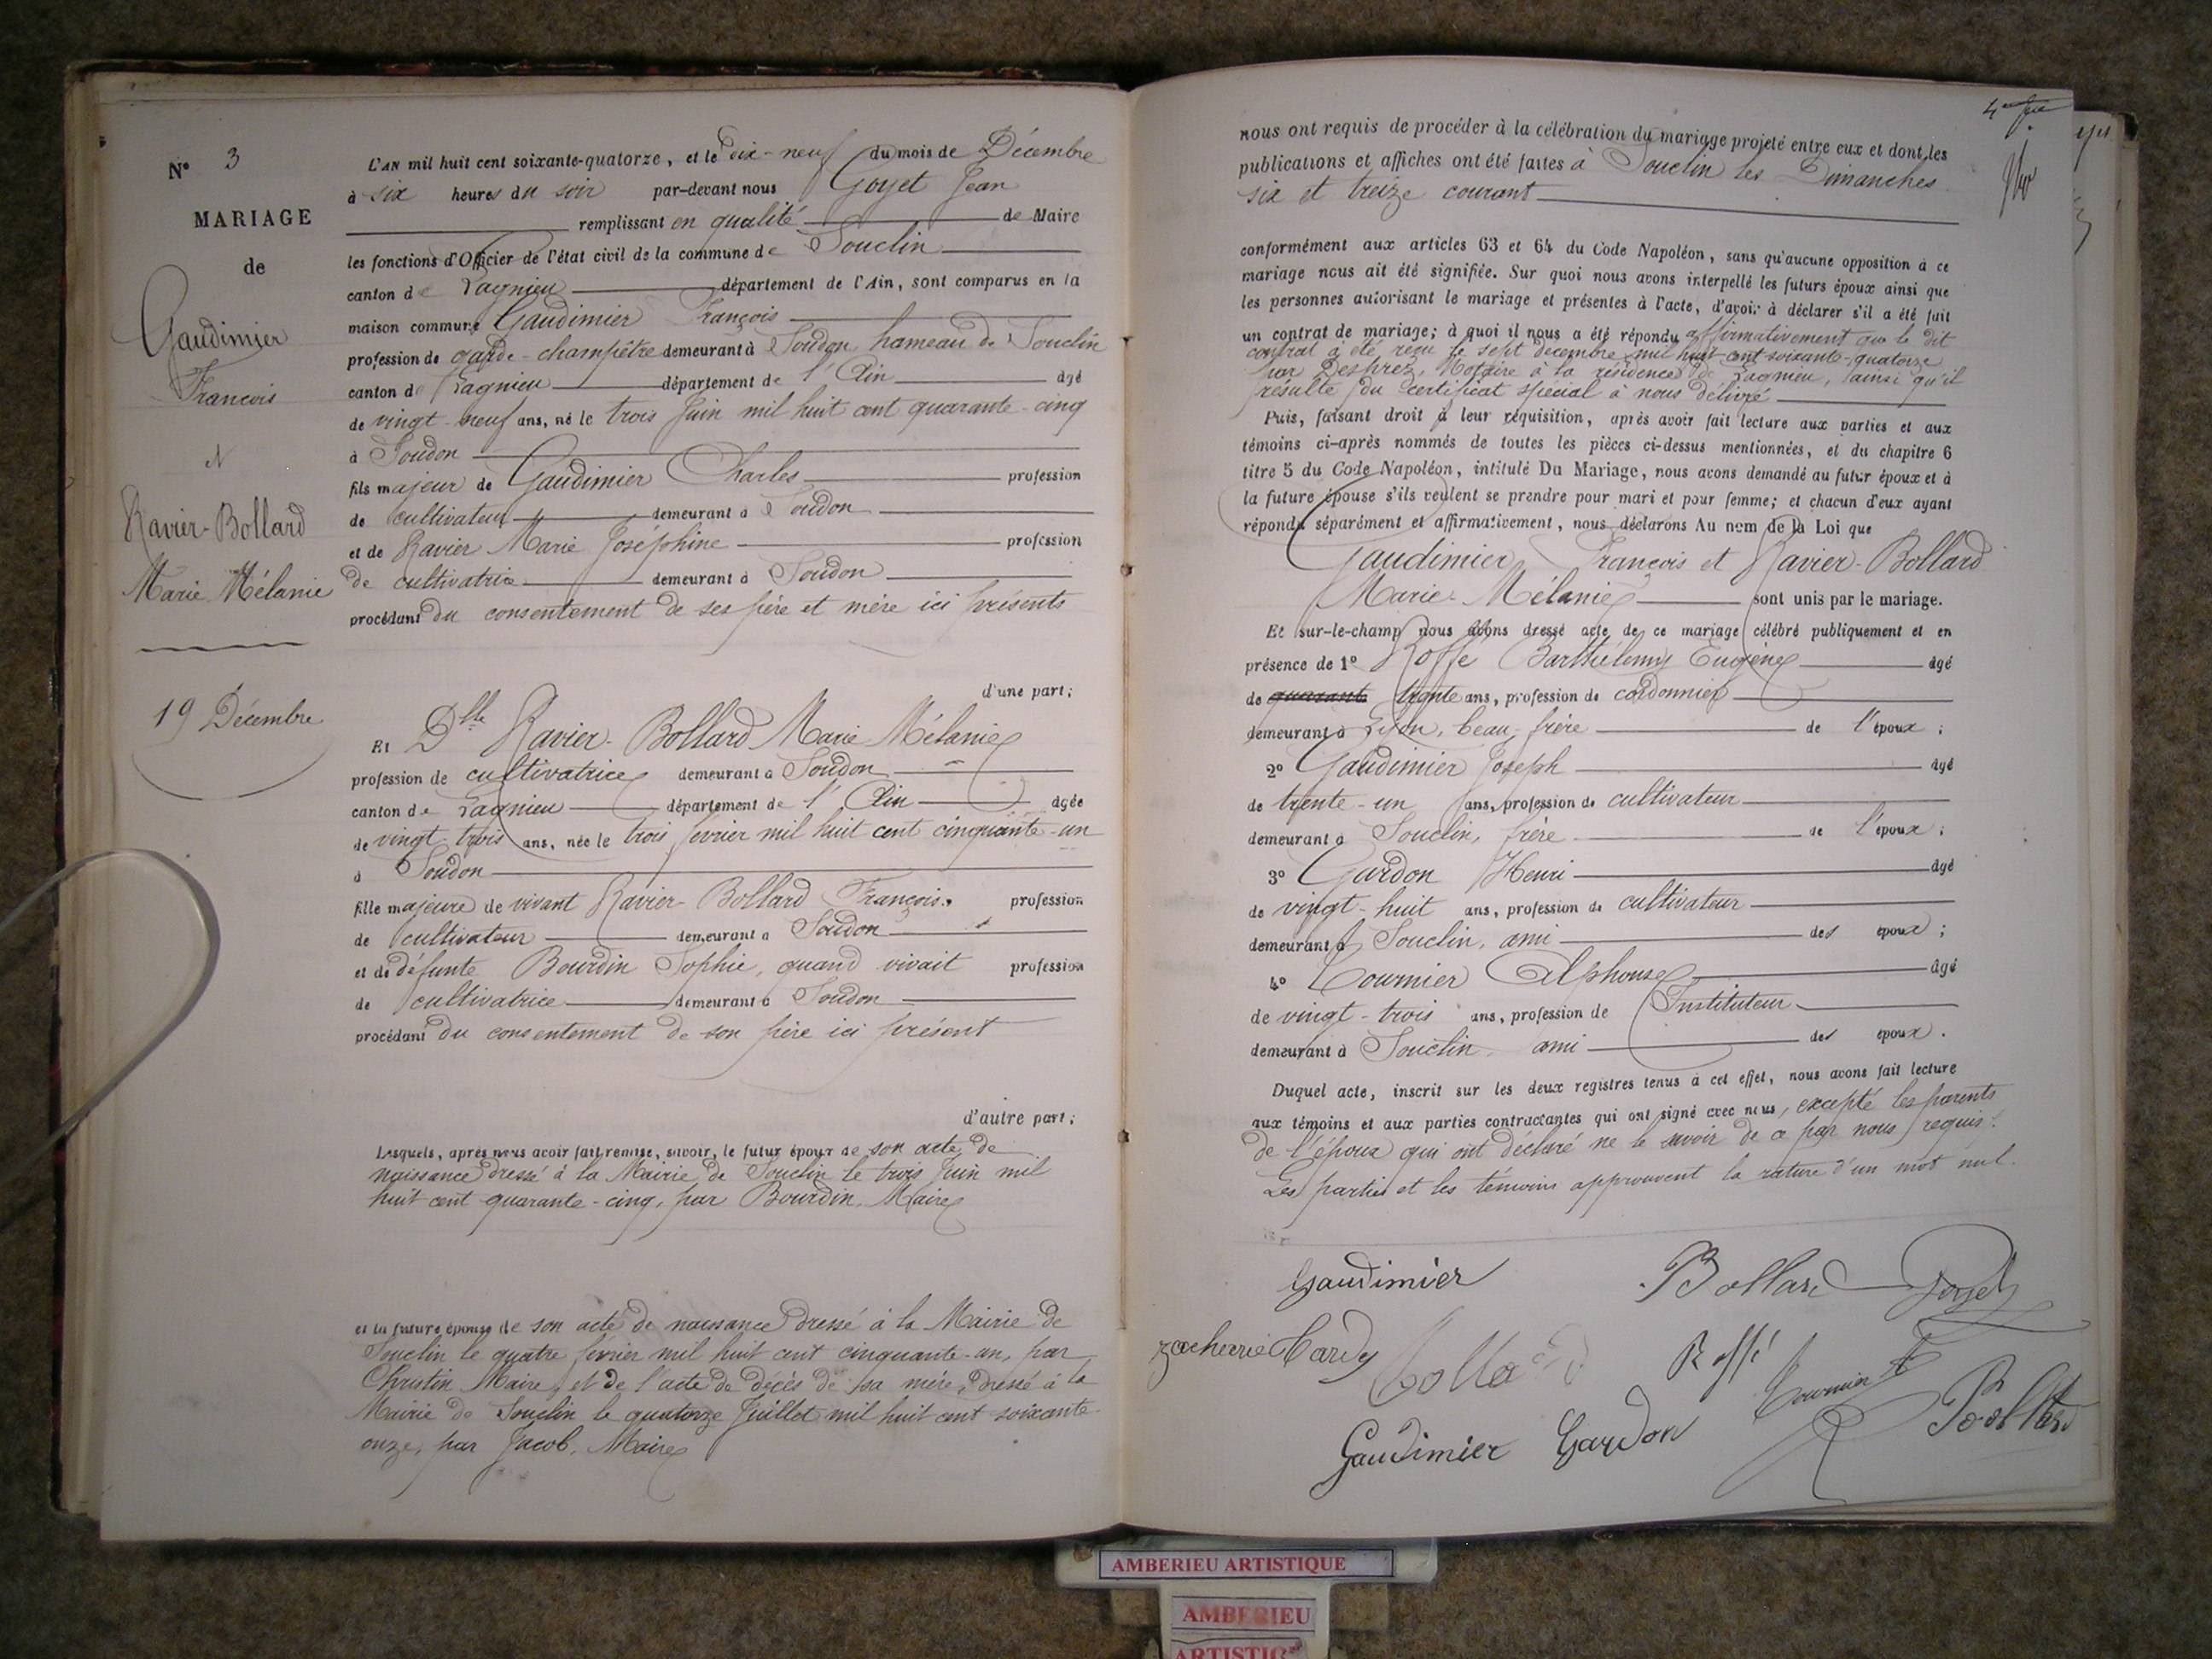 N° 3
MARIAGE
de
Gaudimier
François
et
Ravier-Bollard
Marie Mélanie
19 Décembre
L'AN mil huit cent soixante-quatorze, et le dix-neuf du mois de Décembre
à six heures du soir par-devant nous Goyet Jean
remplissant en qualité de Maire
les fonctions d'Officier de l'état civil de la commune de Souclin
canton de Lagnieu département de l'Ain, sont comparus en la
maison commune Gaudimier François
profession de garde-champêtre demeurant à Soudon hameau de Souclin
canton de Lagnieu département de l'Ain âgé
de vingt-neuf ans, né le trois Juin mil huit cent quarante-cinq
à Soudon
fils majeur de Gaudimier Charles profession
de cultivateur demeurant à Soudon
et de Ravier Marie Joséphine profession
de cultivatrice demeurant à Soudon
procédant du consentement de ses père et mère ici présents
d'une part;
Et Dlle Ravier-Bollard Marie Mélanie
profession de cultivatrice demeurant à Soudon
canton de Lagnieu département de l'Ain âgée
de vingt-trois ans, née le trois février mil huit cent cinquante-un
à Soudon
fille majeure de vivant Ravier-Bollard François, profession
de cultivateur demeurant à Soudon
et de défunte Bourdin Sophie, quand vivait profession
de cultivatrice demeurant à Soudon
procédant du consentement de son père ici présent
d'autre part;
Lesquels, après nous avoir fait remise, savoir, le futur époux de son acte de
naissance dressé à la Mairie de Souclin le trois Juin mil
huit cent quarante-cinq, par Bourdin, Maire
et la future épouse de son acte de naissance dressé à la Mairie de
Souclin le quatre février mil huit cent cinquante-un, par
Christin Maire, et de l'acte de décès de sa mère, dressé à la
Mairie de Souclin le quatorze Juillet mil huit cent soixante-
onze, par Jacob, Maire
nous ont requis de procéder à la célébration du mariage projeté entre eux et dont les
publications et affiches ont été faites à Souclin les Dimanches
six et treize courant
conformément aux articles 63 et 64 du Code Napoléon, sans qu'aucune opposition à ce
mariage nous ait été signifiée. Sur quoi nous avons interpellé les futurs époux ainsi que
les personnes autorisant le mariage et présentes à l'acte, d'avoir à déclarer s'il a été fait
un contrat de mariage; à quoi il nous a été répondu affirmativement que le dit
contrat a été reçu le sept décembre mil huit cent soixante-quatorze
par Desprez, Notaire à la résidence de Lagnieu, ainsi qu'il
résulte du certificat spécial à nous délivré
Puis, faisant droit à leur réquisition, après avoir fait lecture aux parties et aux
témoins ci-après nommés de toutes les pièces ci-dessus mentionnées, et du chapitre 6
titre 5 du Code Napoléon, intitulé Du Mariage, nous avons demandé au futur époux et à
la future épouse s'ils veulent se prendre pour mari et pour femme; et chacun d'eux ayant
répondu séparément et affirmativement, nous déclarons Au nom de la Loi que
Gaudimier François et Ravier-Bollard
Marie-Mélanie sont unis par le mariage.
Et sur-le-champ nous avons dressé acte de ce mariage célébré publiquement et en
présence de 1° Roffé Barthélemy Eugène âgé
de quarante trente ans, profession de cordonnier
demeurant à Lyon, beau-frère de l'époux;
2° Gaudimier Joseph âgé
de trente-un ans, profession de cultivateur
demeurant à Souclin, frère de l'époux;
3° Gardon Henri âgé
de vingt-huit ans, profession de cultivateur
demeurant à Souclin, ami des époux;
4° Tournier Alphonse âgé
de vingt-trois ans, profession de Instituteur
demeurant à Souclin, ami des époux.
Duquel acte, inscrit sur les deux registres tenus à cet effet, nous avons fait lecture
aux témoins et aux parties contractantes qui ont signé avec nous, excepté les parents
de l'époux qui ont déclaré ne le savoir de ce par nous requis.
Les parties et les témoins approuvent la rature d'un mot nul.
Gaudimier Bollard Goyet
Roffé
Tournier A
Gaudimier Gardon Bollard
AMBERIEU ARTISTIQUE
AMBERIEU
ARTISTIQUE